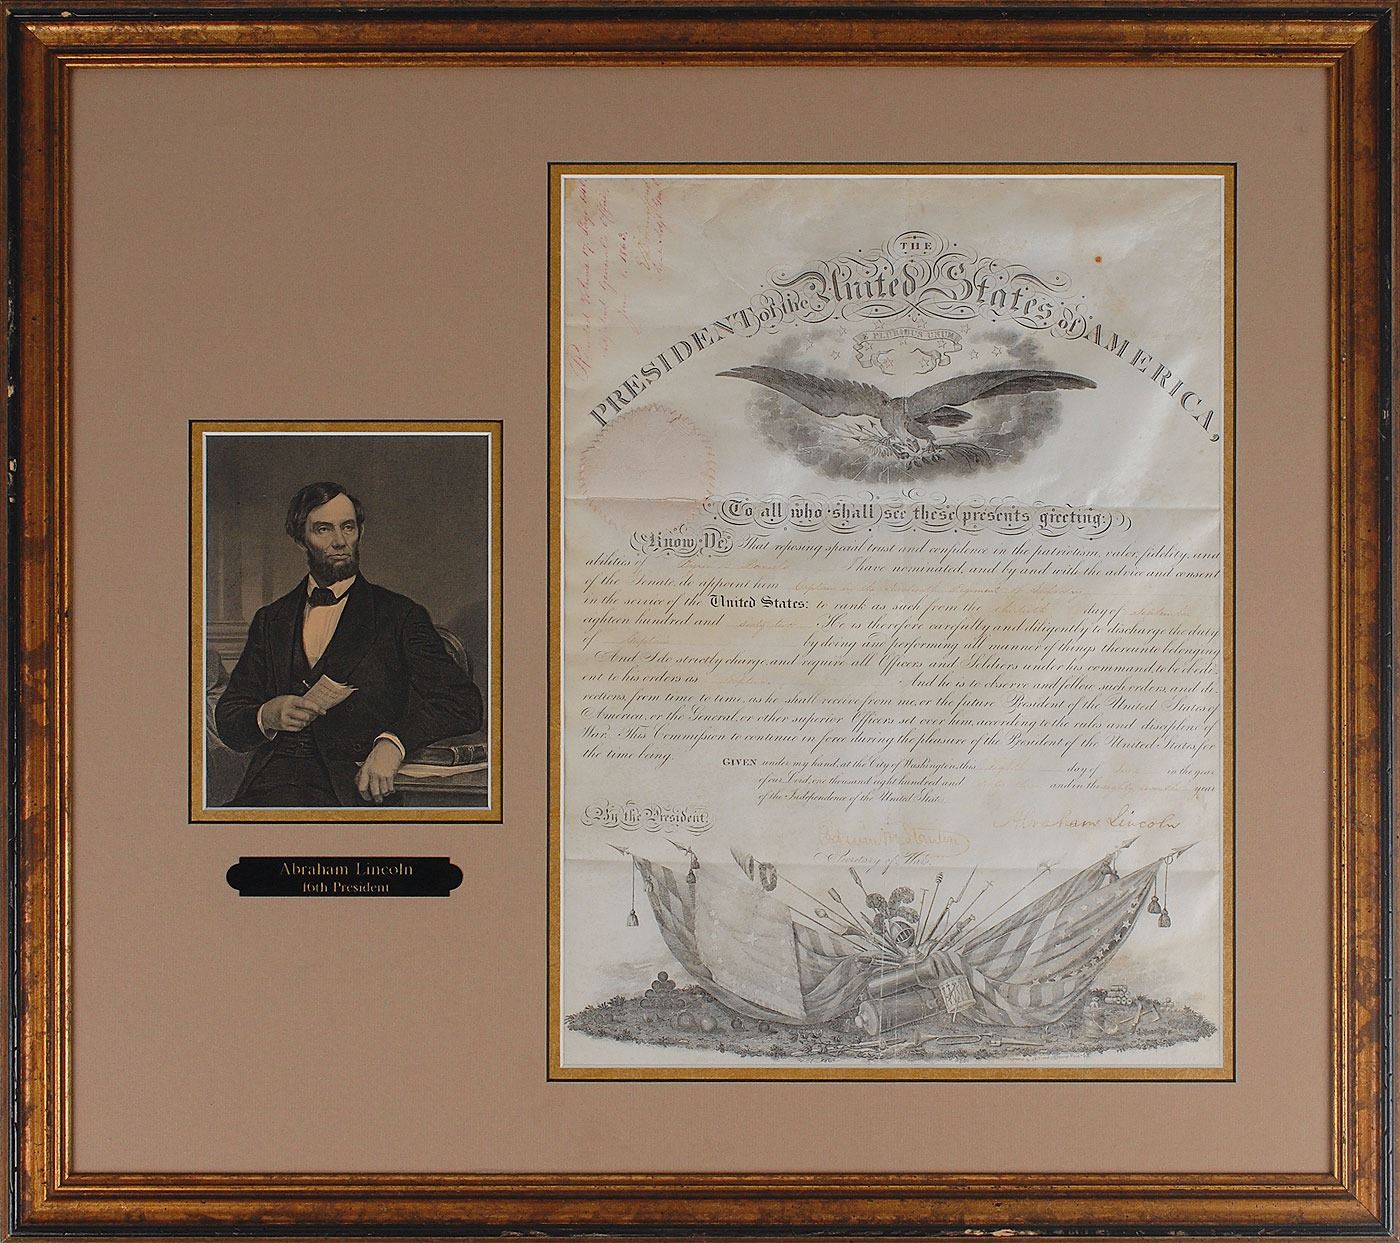 THE
PRESIDENT of the United States of AMERICA,
E PLURIBUS UNUM
To all who shall see these presents greeting:
Know Ye, That reposing special trust and confidence in the patriotism, valor, fidelity, and
abilities of I have nominated, and by and with the advice and consent
of the Senate, do appoint him Captain in the Regiment of Infantry
in the service of the United States: to rank as such from the day of
eighteen hundred and sixty two He is therefore carefully and diligently to discharge the duty
of Captain by doing and performing all manner of things thereunto belonging
And I do strictly charge, and require all Officers and Soldiers under his command, to be obedi-
ent to his orders as Captain And he is to observe and follow such orders, and di-
rections, from time to time, as he shall receive from me, or the future President of the United States of
America, or the General, or other superior Officers set over him, according to the rules and discipline of
War. This Commission to continue in force during the pleasure of the President of the United States for
the time being.
GIVEN under my hand, at the City of Washington, this eighth day of June in the year
of our Lord, one thousand eight hundred and and in the eighty seventh year
of the Independence of the United States.
By the President,
Abraham Lincoln
Edwin M Stanton
Secretary of War.
Abraham Lincoln
16th President